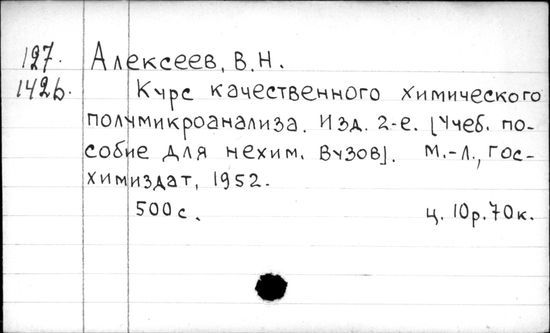 127. Алексеев, В.Н.
142б. Курс качественного химического
полумикроанализа. Изд. 2-е. [Учеб. по-
собие для нехим. вузов]. М.-Л., Гос-
химиздат, 1952.
500 с. ц. 10р.70к.